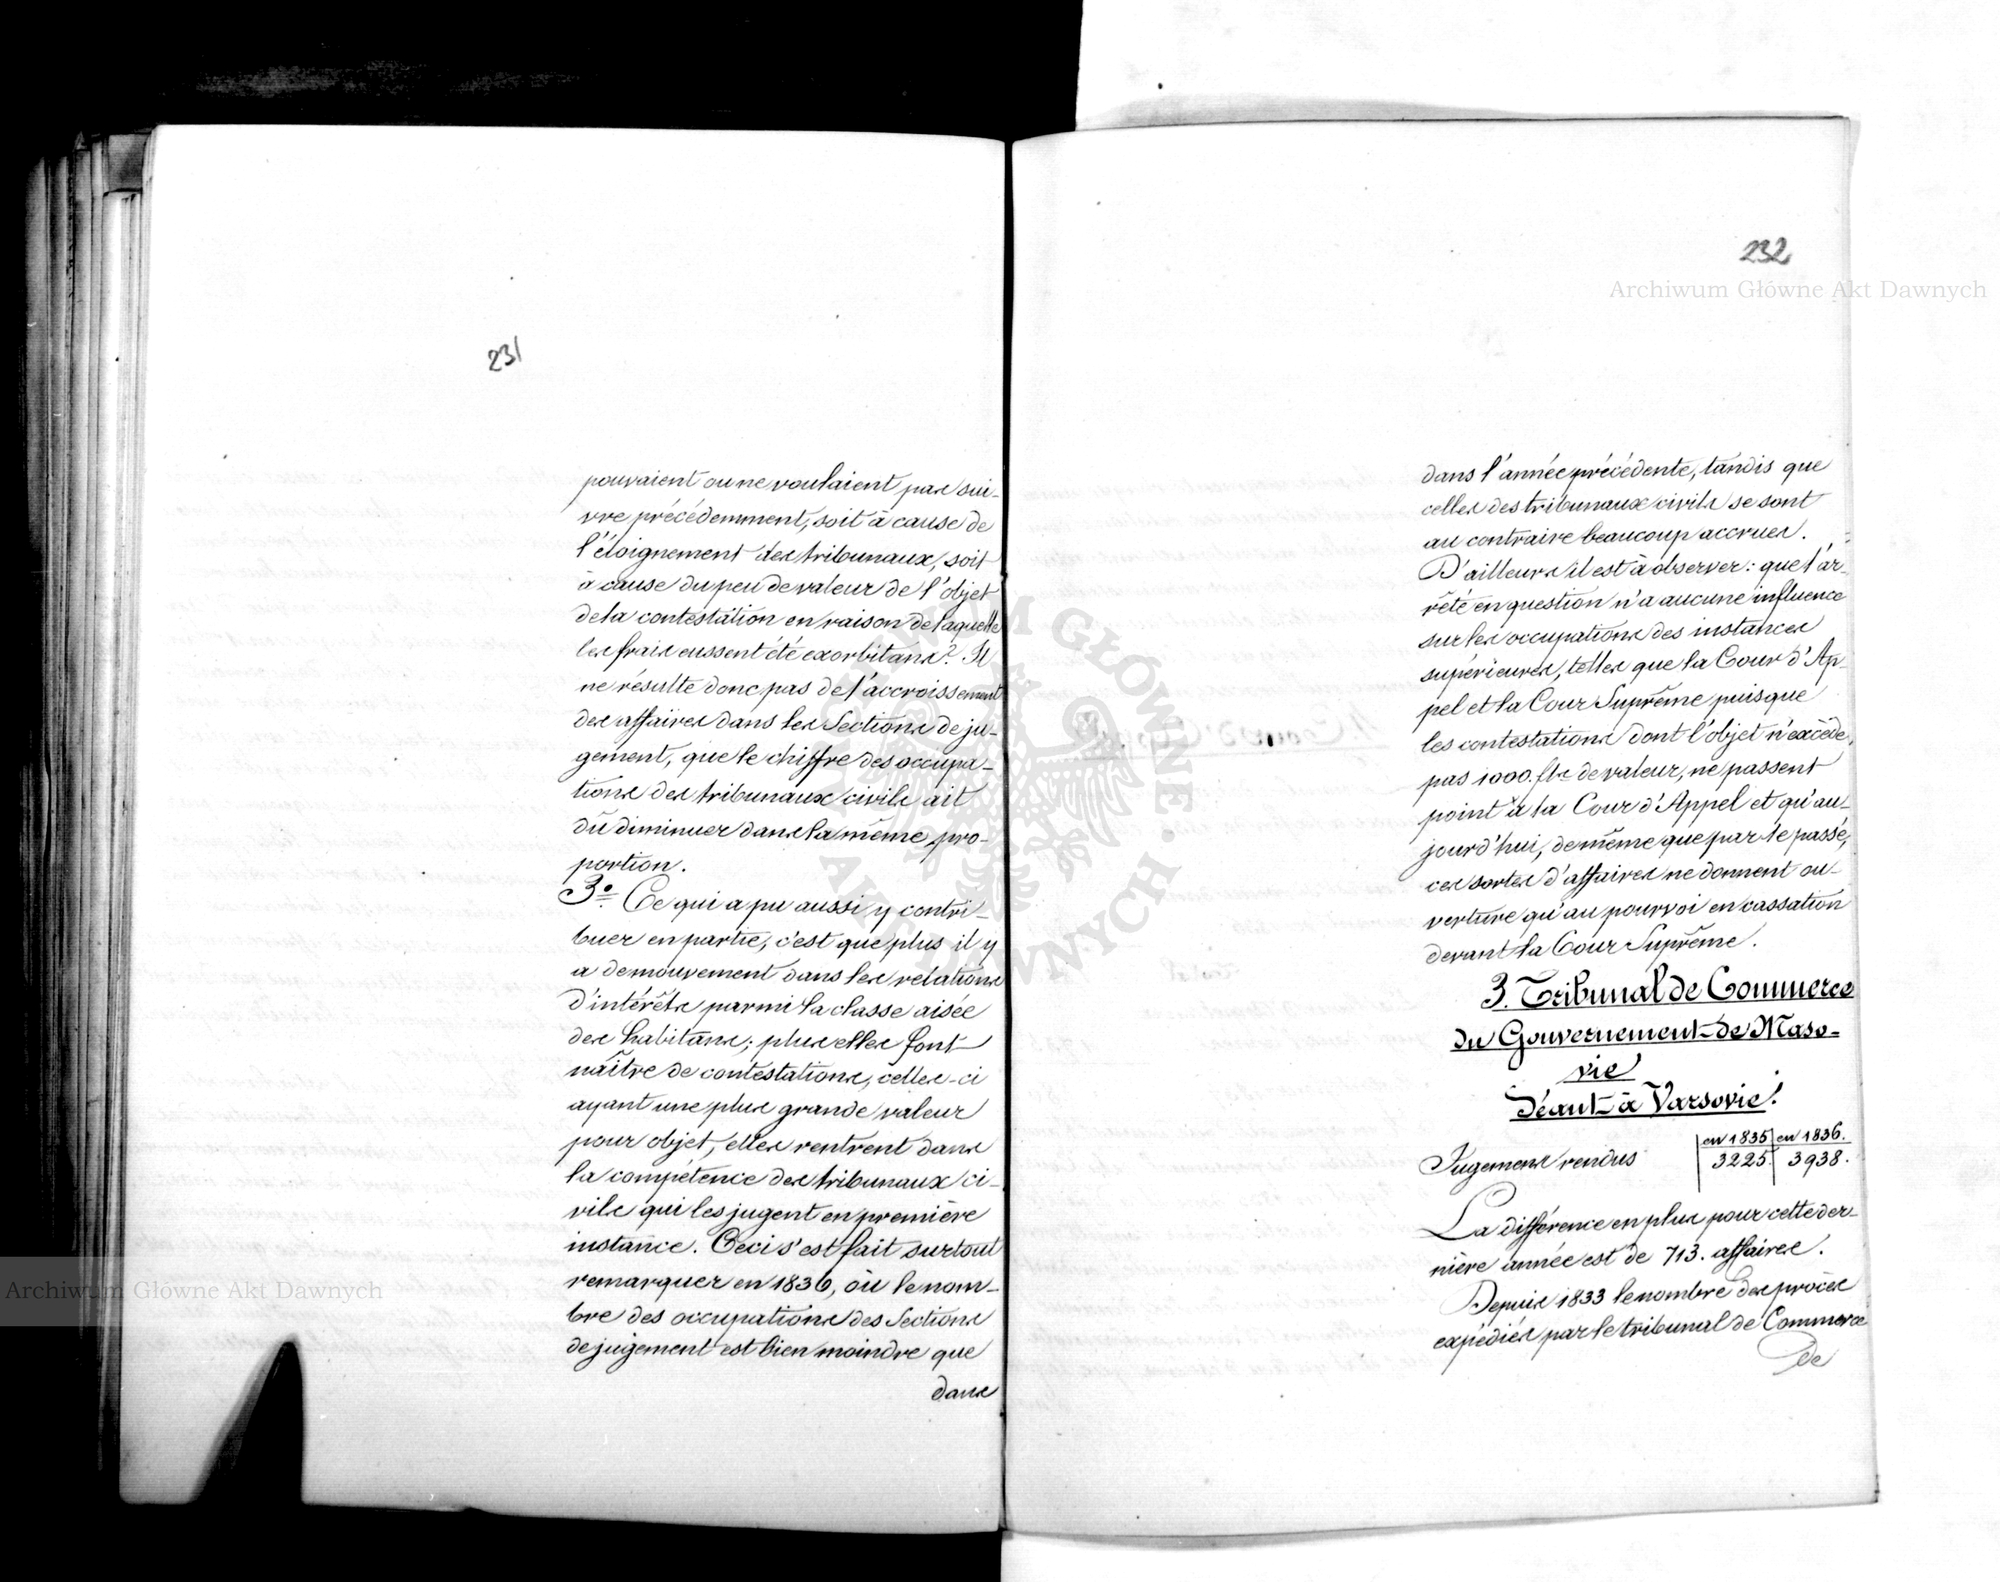 231
pouvaient ou ne voulaient pas sui-
vre précédemment, soit à cause de
l'éloignement des tribunaux, soit
à cause du peu de valeur de l'objet
de la contestation en raison de laquelle
les frais eussent été exorbitans? Il
ne résulte donc pas de l'accroissement
des affaires dans les Sections de ju-
gement, que le chiffre des occupa-
tions des tribunaux civils ait
dû diminuer dans la même pro-
portion.
3º Ce qui a pu aussi y contri-
buer en partie, c'est que plus il y
a de mouvement dans les relations
d'intérêts parmi la classe aisée
des habitans; plus elles font
naître de contestations, celles-ci
ayant une plus grande valeur
pour objet, elles rentrent dans
la compétence des tribunaux ci-
vils qui les jugent en première
instance. Ceci s'est fait surtout
remarquer en 1836, où le nom-
bre des occupations des Sections
de jugement est bien moindre que
dans
232
Archiwum Główne Akt Dawnych
dans l'année précédente, tandis que
celles des tribunaux civils se sont
au contraire beaucoup accrues.
D'ailleurs il est à observer: que l'ar-
rêté en question n'a aucune influence
sur les occupations des instances
supérieures, telles que la Cour d'Ap-
pel et la Cour Suprême puisque
les contestations dont l'objet n'excède
pas 1000. fls de valeur, ne passent
point à la Cour d'Appel et qu'au-
jourd'hui, de même que par le passé,
ces sortes d'affaires ne donnent ou-
verture qu'au pourvoi en cassation
devant la Cour Suprême.
3. Tribunal de Commerce
du Gouvernement de Maso-
vie
Séant à Varsovie.
en 1835 en 1836.
Jugemens rendus 3225. 3938.
La différence en plus pour cette der-
nière année est de 713. affaires.
Depuis 1833 le nombre des procès
expédiés par le tribunal de Commerce
de
Archiwum Główne Akt Dawnych
ARCHIWUM GŁÓWNE AKT DAWNYCH